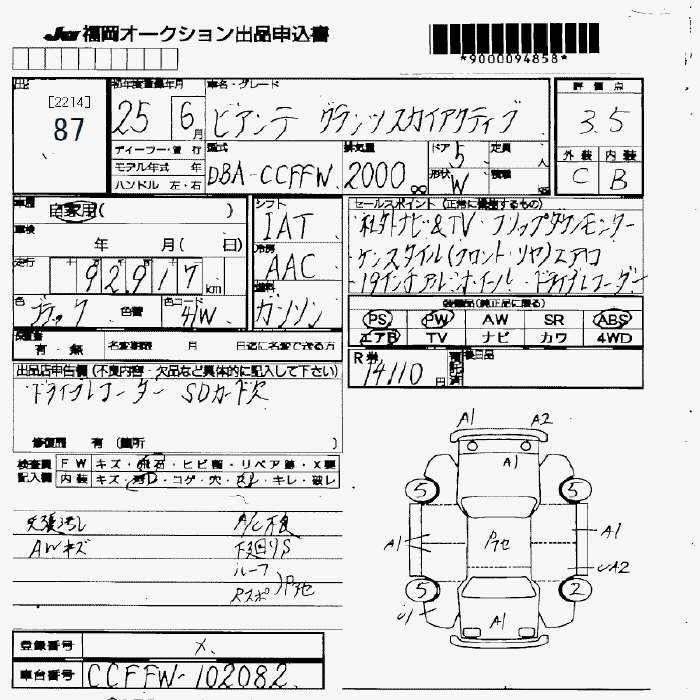 JU 福岡オークション出品申込書
*9000094858*
[2214]
87
初年度登録年月
25 6月
車名・グレード
ビアンテ グランツ スカイアクティブ
評価点
3.5
ディーラー・並行
モデル年式 年
ハンドル 左・右
型式
DBA-CCFFW
排気量
2000 cc
ドア
5
形状
W
定員
人
積載
外装 内装
C B
車歴
自家用( )
車検
年 月( 日)
走行
92917 km
色
ブラック
色替
色コード
41W
シフト
IAT
冷房
AAC
燃料
ガソリン
セールスポイント (正常に機能するもの)
社外ナビ&TV・フリップダウンモニター
・ケンスタイル(フロント・リヤ)エアロ
・19インチアルミホイール・ドライブレコーダー
装備品(純正品に限る)
PS PW AW SR ABS
エアB TV ナビ カワ 4WD
有・無
名変期限 月 日迄に名変できる方
R券
14110円
預託済
後日品
出品店申告欄 (不良内容・欠品など具体的に記入して下さい)
ドライブレコーダー SDカード欠
修復歴 有 (箇所 )
検査員記入欄
FW キズ・飛石・ヒビ割・リペア跡・X要
内装 キズ・汚れ・コゲ・穴・切れ・破レ
天張汚レ
A/C不良
AWキズ
下廻りS
ルーフ
Rスポ )Pアセ
A1 A2
A1
5 5
A1 Pアセ A1
UA2
5 2
U1 A1
登録番号
メ.
車台番号
CCFFW-102082